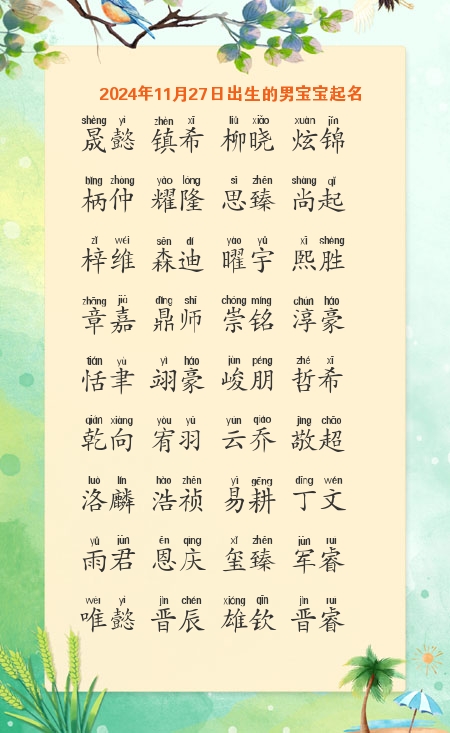 2024年11月27日出生的男宝宝起名
shèng yì zhèn xī liǔ xiǎo xuàn jǐn
晟懿 镇希 柳晓 炫锦
bǐng zhòng yào lóng sī zhēn shàng qǐ
柄仲 耀隆 思臻 尚起
zǐ wéi sēn dí yào yǔ xī shèng
梓维 森迪 曜宇 熙胜
zhāng jiā dǐng shī chóng míng chún háo
章嘉 鼎师 崇铭 淳豪
tián yù yì háo jùn péng zhé xī
恬聿 翊豪 峻朋 哲希
qián xiàng yòu yǔ yún qiáo jìng chāo
乾向 宥羽 云乔 敬超
luò lín hào zhēn yì gēng dīng wén
洛麟 浩祯 易耕 丁文
yǔ jūn ēn qìng xǐ zhēn jūn ruì
雨君 恩庆 玺臻 军睿
wéi yì jìn chén xióng qīn jìn ruì
唯懿 晋辰 雄钦 晋睿